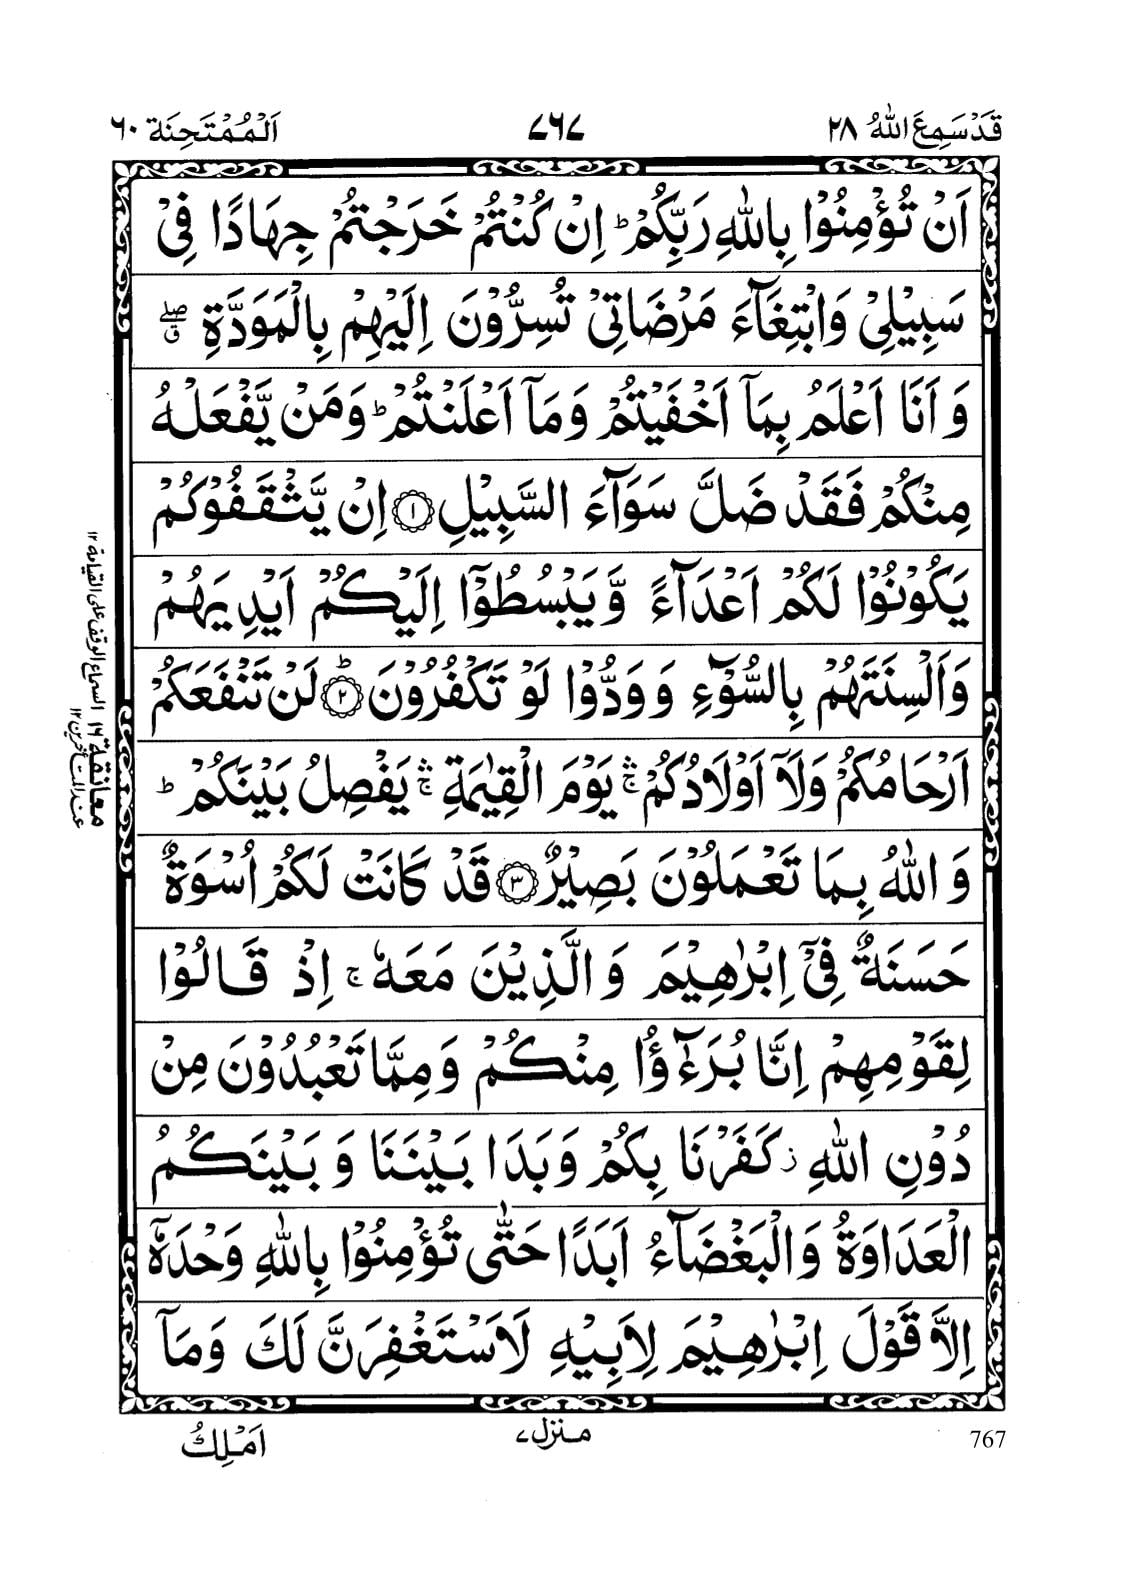 قَدْ سَمِعَ اللّٰهُ ٢٨
٧٦٧
اَلْمُمْتَحِنَة ٦٠
اَنْ تُؤْمِنُوْا بِاللّٰهِ رَبِّكُمْ ؕ اِنْ كُنْتُمْ خَرَجْتُمْ جِهَادًا فِیْ
سَبِيْلِیْ وَابْتِغَآءَ مَرْضَاتِیْ تُسِرُّوْنَ اِلَيْهِمْ بِالْمَوَدَّةِ ۖق
وَ اَنَا اَعْلَمُ بِمَاۤ اَخْفَيْتُمْ وَمَاۤ اَعْلَنْتُمْ ؕ وَمَنْ يَّفْعَلْهُ
مِنْكُمْ فَقَدْ ضَلَّ سَوَآءَ السَّبِيْلِ ﴿١﴾ اِنْ يَّثْقَفُوْكُمْ
يَكُوْنُوْا لَكُمْ اَعْدَآءً وَّيَبْسُطُوْۤا اِلَيْكُمْ اَيْدِيَهُمْ
وَاَلْسِنَتَهُمْ بِالسُّوْٓءِ وَوَدُّوْا لَوْ تَكْفُرُوْنَ ؕ﴿٢﴾ لَنْ تَنْفَعَكُمْ
اَرْحَامُكُمْ وَلَاۤ اَوْلَادُكُمْ ۛۚ يَوْمَ الْقِيٰمَةِ ۛۚ يَفْصِلُ بَيْنَكُمْ ؕ
وَ اللّٰهُ بِمَا تَعْمَلُوْنَ بَصِيْرٌ ﴿٣﴾ قَدْ كَانَتْ لَكُمْ اُسْوَةٌ
حَسَنَةٌ فِیْۤ اِبْرٰهِيْمَ وَ الَّذِيْنَ مَعَهٗ ۚ اِذْ قَالُوْا
لِقَوْمِهِمْ اِنَّا بُرَءٰٓؤُا مِنْكُمْ وَمِمَّا تَعْبُدُوْنَ مِنْ
دُوْنِ اللّٰهِ ز كَفَرْنَا بِكُمْ وَبَدَا بَيْنَنَا وَ بَيْنَكُمُ
الْعَدَاوَةُ وَالْبَغْضَآءُ اَبَدًا حَتّٰى تُؤْمِنُوْا بِاللّٰهِ وَحْدَهٗۤ
اِلَّا قَوْلَ اِبْرٰهِيْمَ لِاَبِيْهِ لَاَسْتَغْفِرَنَّ لَكَ وَمَاۤ
اَمْلِكُ
منزل ٧
767
معانقة ١٦